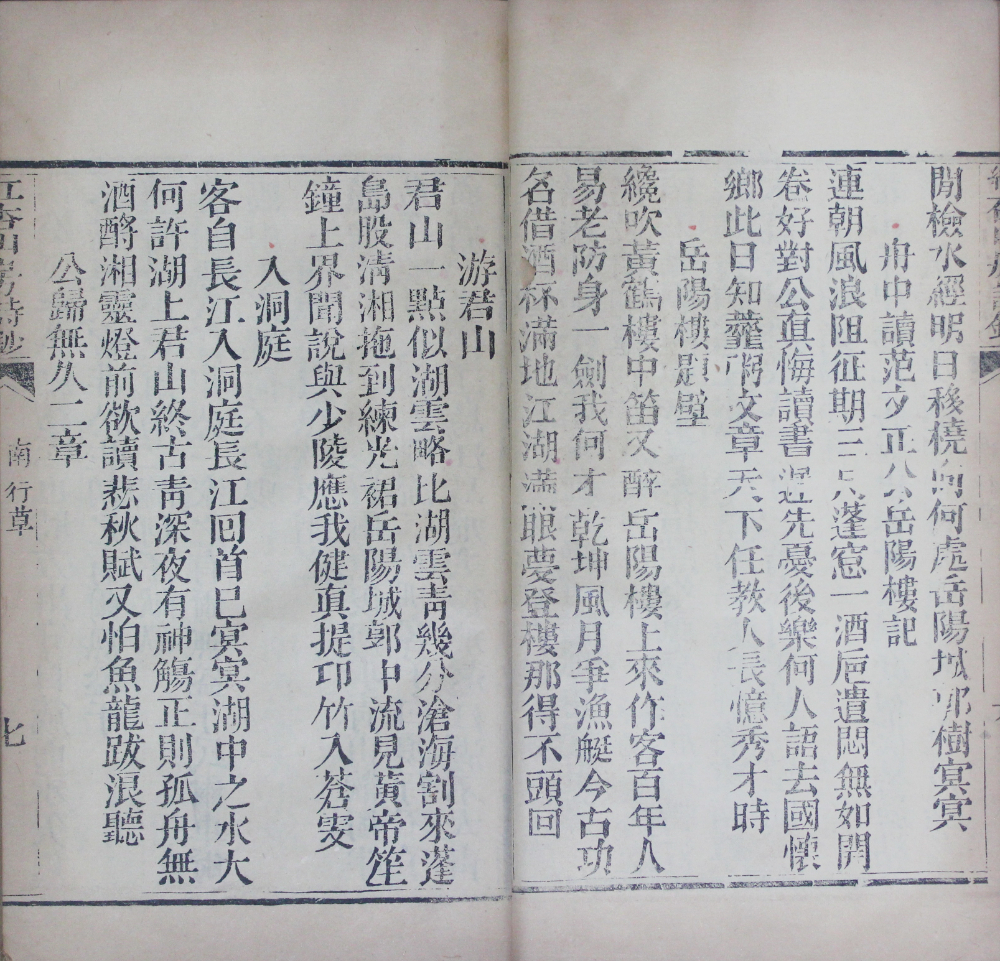 閒檢水經明日移橈向何處岳陽城郭樹冥冥
舟中讀范文正公岳陽樓記
連朝風浪阻征期三尺蓬窓一酒巵遣悶無如開
卷好對公眞悔讀書遲先憂後樂何人語去國懷
鄉此日知虀粥文章天下任教人長憶秀才時
岳陽樓題壁
纔吹黃鶴樓中笛又醉岳陽樓上來作客百年人
易老防身一劍我何才乾坤風月爭漁艇今古功
名借酒杯滿地江湖滿眼夢登樓那得不頭回
游君山
君山一點似湖雲略比湖雲靑幾分滄海割來蓬
島股淸湘拖到練光裙岳陽城郭中流見黃帝笙
鐘上界聞說與少陵應我健眞提卭竹入蒼雯
入洞庭
客自長江入洞庭長江回首已冥冥湖中之水大
何許湖上君山終古靑深夜有神觴正則孤舟無
酒酹湘靈燈前欲讀悲秋賦又怕魚龍跋浪聽
公歸無久二章
紅杏山房詩鈔
南行草
七